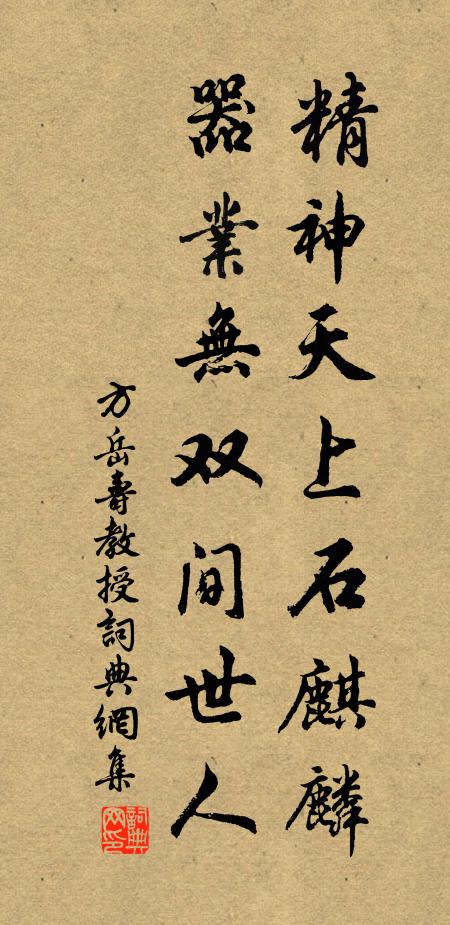 精神天上石麒麟
器業無双间世人
方岳壽教授詞典網集
詞典網印